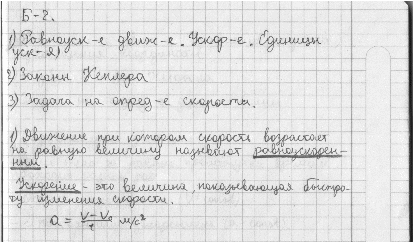 Б-2.
1) Равноуск-е движ-е. Ускор-е. Единицы
уск-я)
2) Законы Кеплера
3) Задача на опред-е скорости.
1) Движение при котором скорость возрастает
на равную величину называют равноускорен-
ным.
Ускорение - это величина, показывающая быстро-
ту изменения скорости.
a = V-V₀/t м/с²